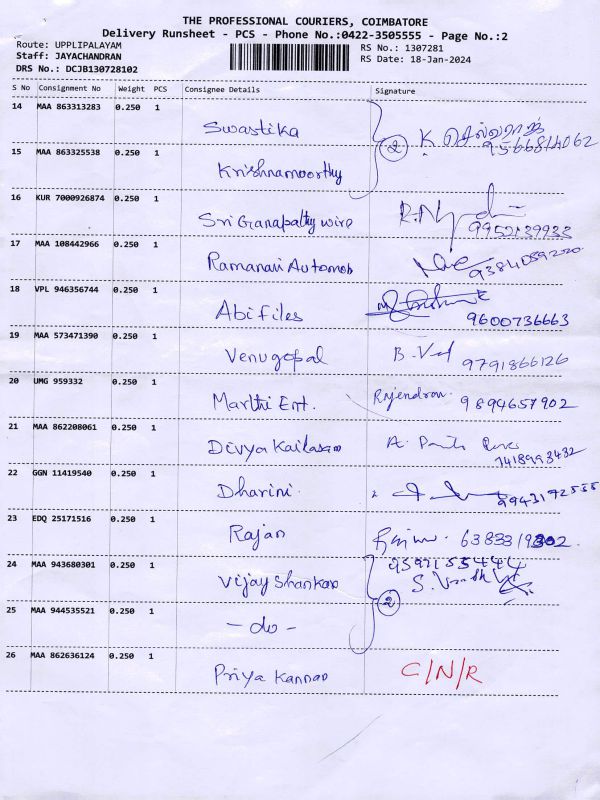 THE PROFESSIONAL COURIERS, COIMBATORE
Delivery Runsheet - PCS - Phone No.:0422-3505555 - Page No.:2
Route: UPPLIPALAYAM RS No.: 1307281
Staff: JAYACHANDRAN RS Date: 18-Jan-2024
DRS No.: DCJB130728102
S No Consignment No Weight PCS Consignee Details Signature
14 MAA 863313283 0.250 1 Swastika ② K. செல்வராஜ் 9566814062
15 MAA 863325538 0.250 1 Krishnamoorthy
16 KUR 7000926874 0.250 1 Sri Ganapathy wire
17 MAA 108442966 0.250 1 Ramanan Automob
18 VPL 946356744 0.250 1 Abi files 9600736663
19 MAA 573471390 0.250 1 Venugopal 9791866126
20 UMG 959332 0.250 1 Maruthi Ent. Rajendran. 9894657902
21 MAA 862208061 0.250 1 Divya Kailasam 7418993432
22 GGN 11419540 0.250 1 Dharini 9943172555
23 EDQ 25171516 0.250 1 Rajan
24 MAA 943680301 0.250 1 Vijay Shankar ②
25 MAA 944535521 0.250 1 - do -
26 MAA 862636124 0.250 1 Priya Kannan C/N/R